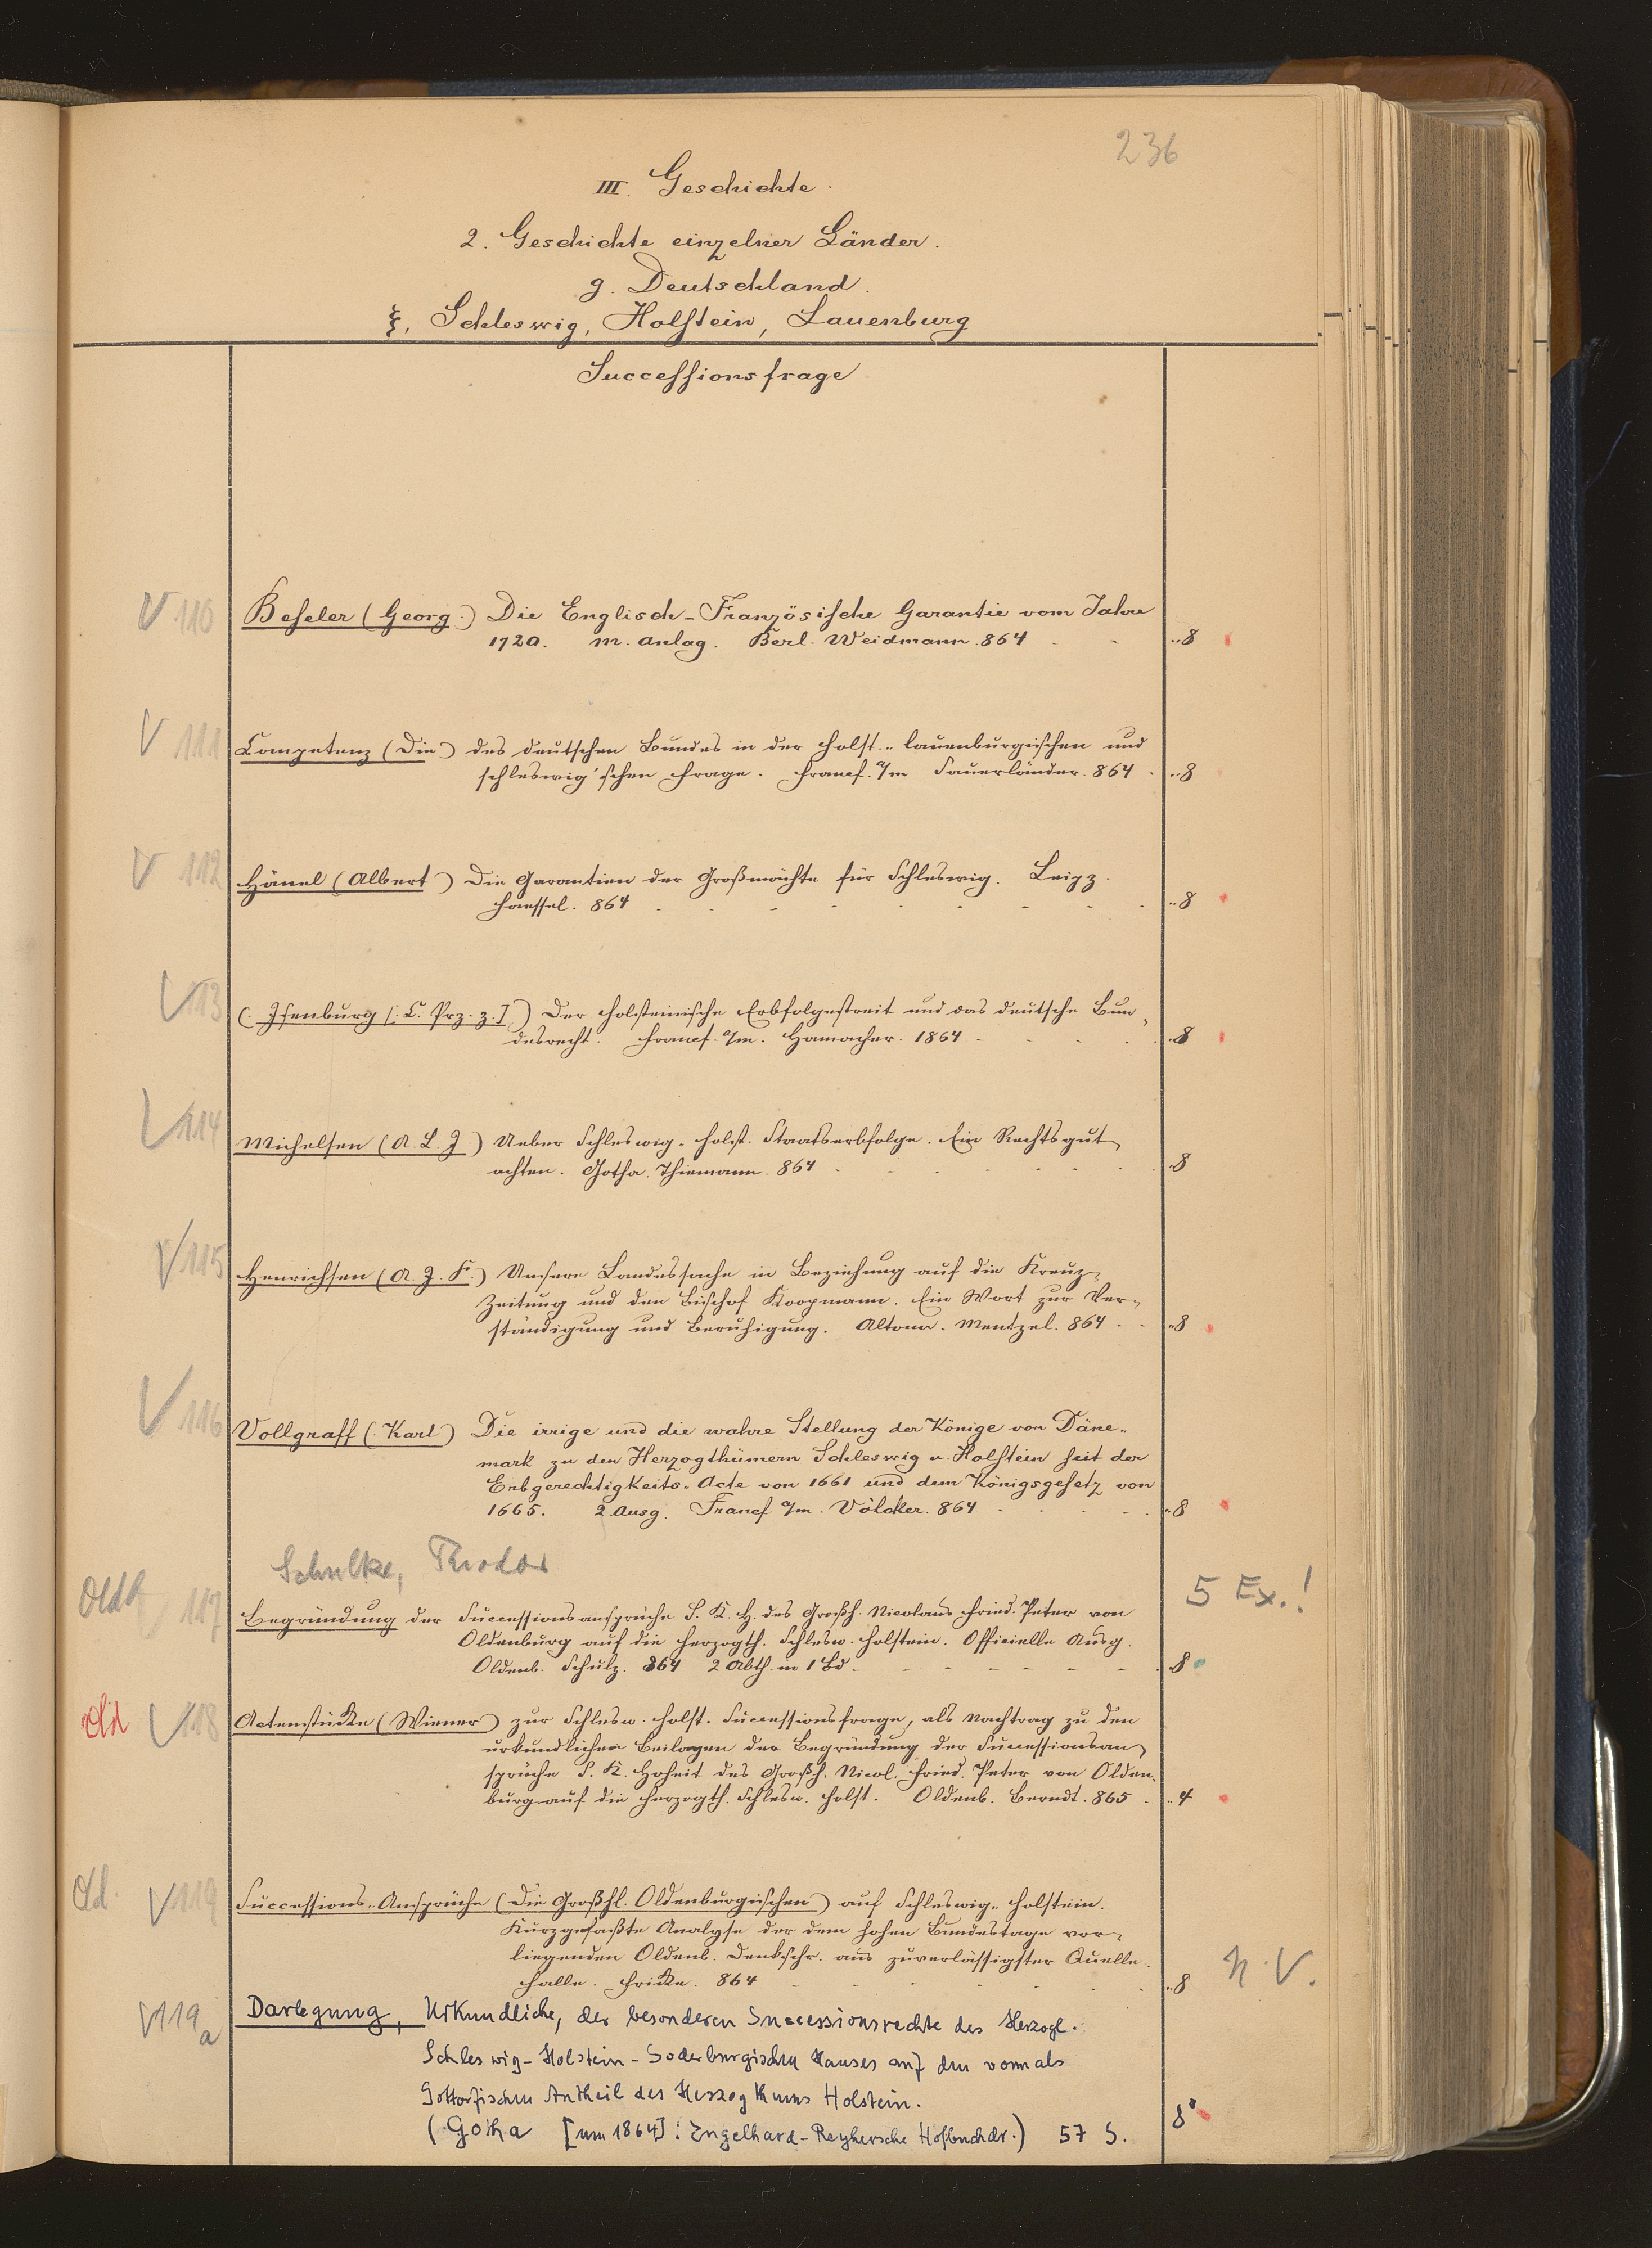 236
III. Geschichte.
2. Geschichte einzelner Länder.
g. Deutschland.
ξ. Schleswig, Holstein, Lauenburg
Successionsfrage
V 110 Beseler (Georg) Die Englisch-Französische Garantie vom Jahre
1720. m. Anlag. Berl. Weidmann. 864 - - 8
V 111 Competenz (Die) des deutschen Bundes in der holst.-lauenburgischen und
schleswig'schen Frage. Francf. a/m Sauerländer. 864 - 8
V 112 Hänel (Albert) Die Garantien der Großmächte für Schleswig. Leipz.
Haessel. 864 - - - - - - - - 8
V 113 (: Isenburg [: C. Prz. z. I) Der holsteinische Erbfolgestreit und das deutsche Bun-
desrecht. Francf. a/m. Hamacher. 1864 - - - - 8
V 114 Michelsen (A. L. J.) Ueber Schleswig-holst. Staatserbfolge. Ein Rechtsgut-
achten. Gotha. Thiemann. 864 - - - - - - 8
V 115 Henrichsen (A. J. F.) Unsere Landessache in Beziehung auf die Kreuz-
Zeitung und den Bischof Koopmann. Ein Wort zur Ver-
ständigung und Beruhigung. Altona. Mentzel. 864 - - 8
V 116 Vollgraff (: Karl) Die irrige und die wahre Stellung der Könige von Däne-
mark zu den Herzogthümern Schleswig u. Holstein seit der
Erbgerechtigkeits-Acte von 1661 und dem Königsgesetz von
1665. 2. Ausg. Francf a/m. Völcker. 864 - - - - 8
Schulke, Theodor
5 Ex.!
Oldb 117 Begründung der Successionsansprüche S. K. H. des Großh. Nicolaus Fried. Peter von
Oldenburg auf die Herzogth. Schlesw. Holstein. Officielle Ausg.
Oldenb. Schulz. 864 2 Abth. in 1 Bd - - - - - 8
Old V 118 Actenstücke (Wiener) zur Schlesw. holst. Successionsfrage, als Nachtrag zu den
urkundlichen Beilagen der Begründung der Successionsan-
sprüche S. K. Hoheit des Großh. Nicol. Fried. Peter von Olden-
burg auf die Herzogth. Schlesw. Holst. Oldenb. Berndt. 865 - 4
Old. V 119 Successions-Ansprüche (Die Großhl. Oldenburgischen) auf Schleswig-Holstein.
Kurzgefaßte Analyse der dem hohen Bundestage vor-
liegenden Oldenb. Denkschr. aus zuverlässigster Quelle.
Halle. Fricke. 864 - - - - - 8 N. V.
V 119a Darlegung, Urkundliche, der besonderen Successionsrechte des Herzogl.
Schleswig-Holstein-Soderburgischen Hauses auf den vormals
Gottorfischen Antheil des Herzogthums Holstein.
(Gotha [um 1864]: Engelhard-Reyhersche Hofbuchdr.) 57 S. 8°